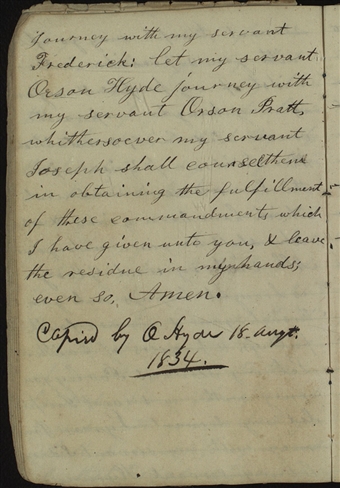 Journey with my servant
Frederick: let my servant
Orson Hyde journey with
my servant Orson Pratt,
whithersoever my servant
Joseph shall counsel them
in obtaining the fulfillment
of these commandments which
I have given unto you, & leave
the residue in my hands;
even so, Amen.
Copied by O Hyde 18. Augt.
1834.